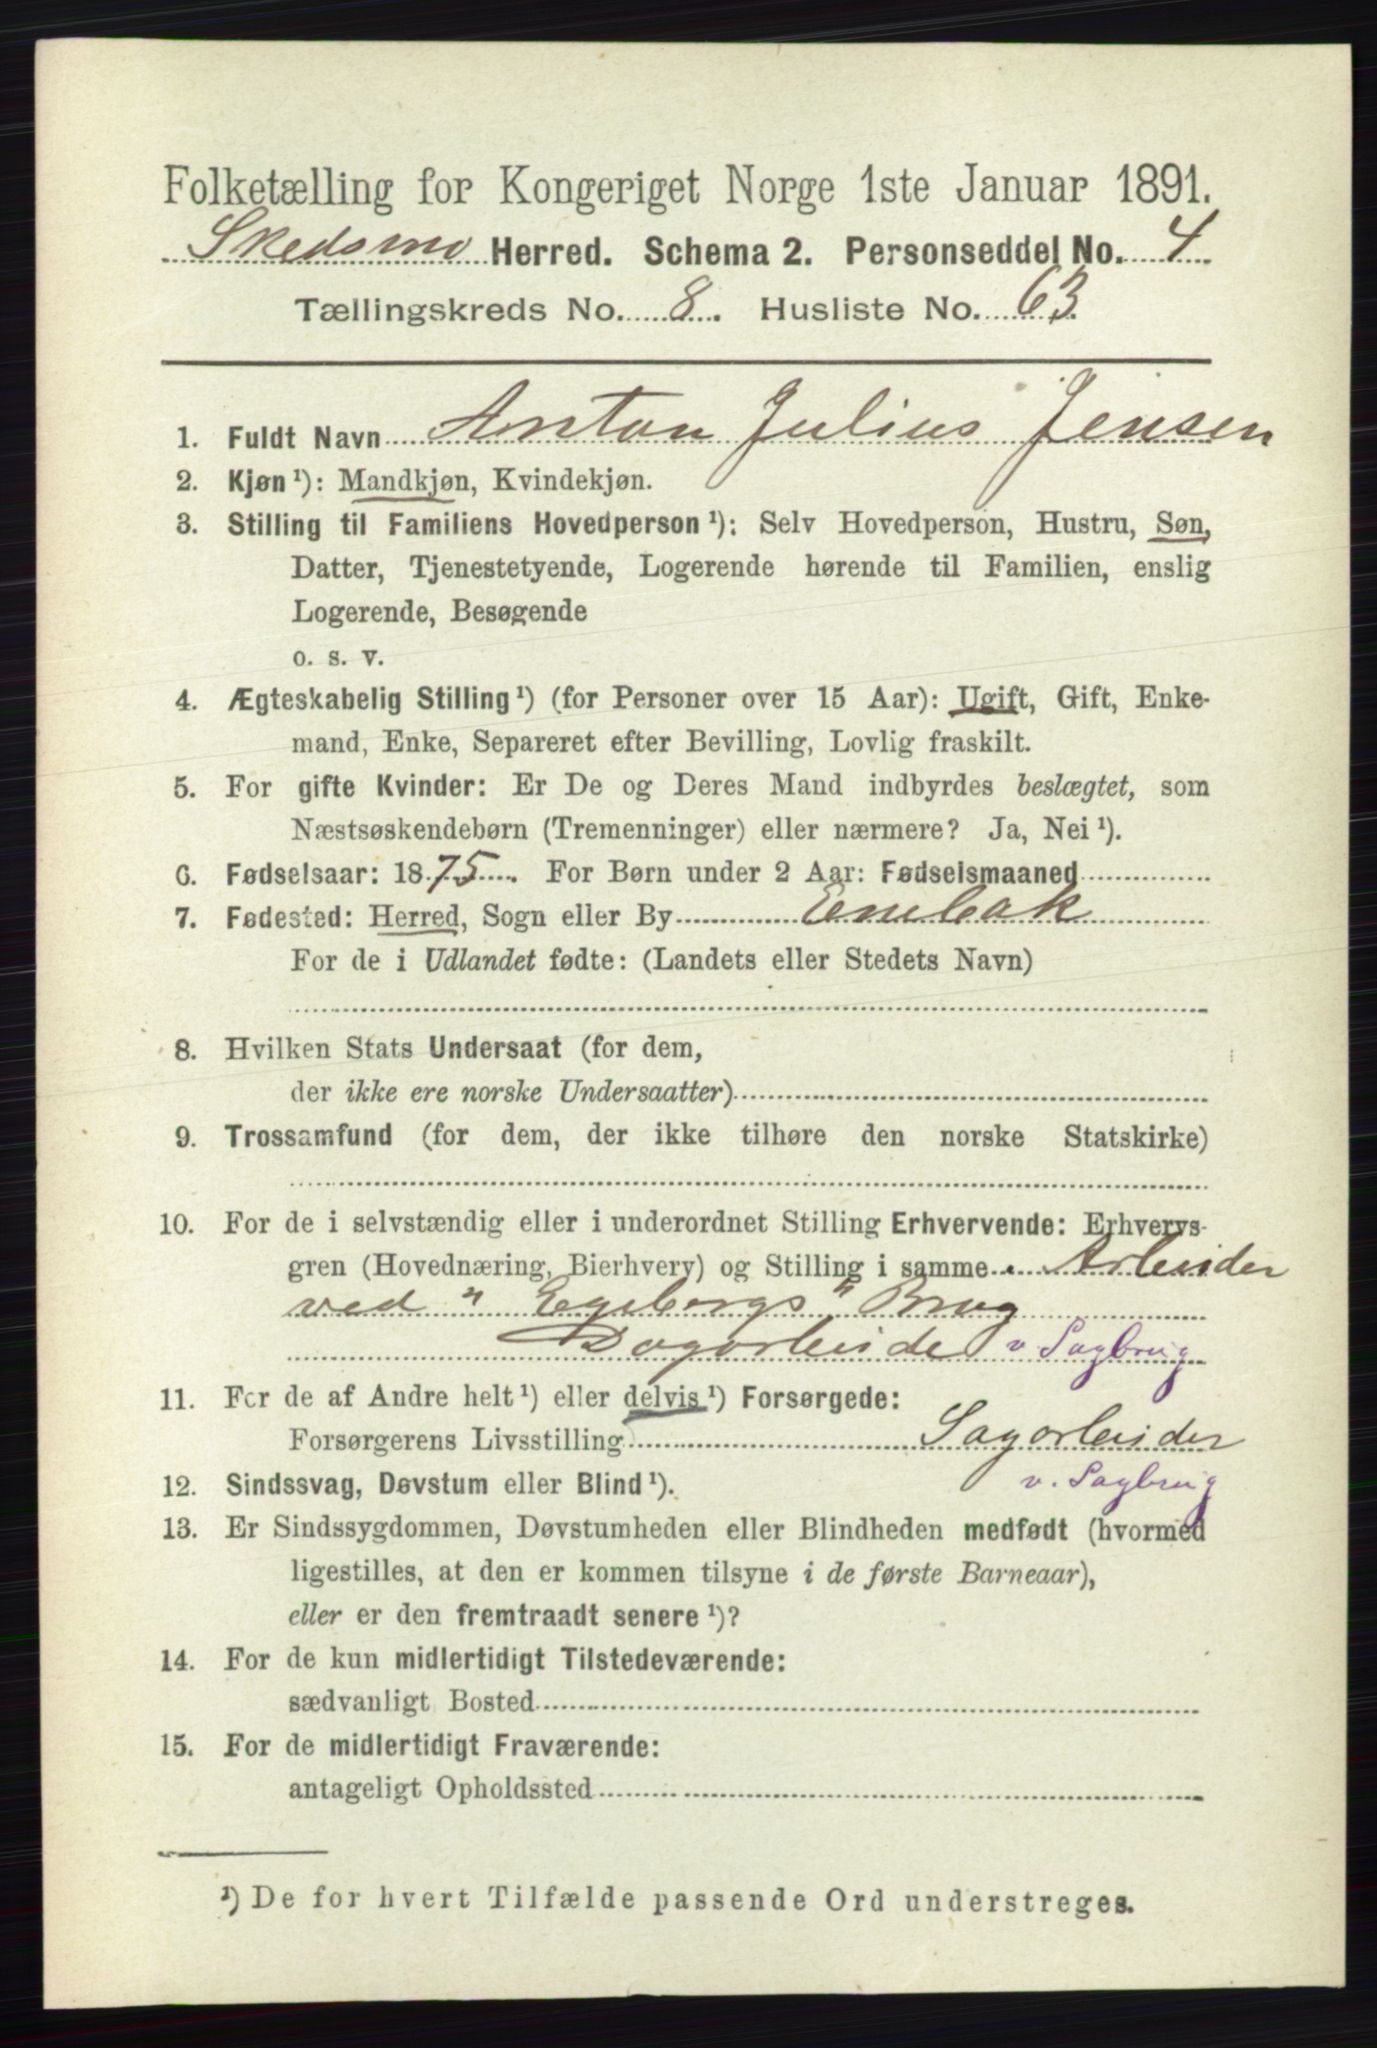 Folketælling for Kongeriget Norge 1ste Januar 1891.
Skedsmo Herred. Schema 2. Personseddel No. 4
Tællingskreds No. 8. Husliste No. 63
1. Fuldt Navn Anton Julius Jensen
2. Kjøn ¹): Mandkjøn, Kvindekjøn.
3. Stilling til Familiens Hovedperson ¹): Selv Hovedperson, Hustru, Søn,
Datter, Tjenestetyende, Logerende hørende til Familien, enslig
Logerende, Besøgende
o. s. v.
4. Ægteskabelig Stilling ¹) (for Personer over 15 Aar): Ugift, Gift, Enke-
mand, Enke, Separeret efter Bevilling, Lovlig fraskilt.
5. For gifte Kvinder: Er De og Deres Mand indbyrdes beslægtet, som
Næstsøskendebørn (Tremenninger) eller nærmere? Ja, Nei ¹).
6. Fødselsaar: 1875. For Børn under 2 Aar: Fødselsmaaned
7. Fødested: Herred, Sogn eller By Enebak
For de i Udlandet fødte: (Landets eller Stedets Navn)
8. Hvilken Stats Undersaat (for dem,
der ikke ere norske Undersaatter)
9. Trossamfund (for dem, der ikke tilhøre den norske Statskirke)
10. For de i selvstændig eller i underordnet Stilling Erhvervende: Erhvervs-
gren (Hovednæring, Bierhverv) og Stilling i samme Arbeider
ved "Egebergs" Brug
Dagarbeide v. Sagbrug
11. For de af Andre helt ¹) eller delvis ¹) Forsørgede:
Forsørgerens Livsstilling Sagarbeider
v. Sagbrug
12. Sindssvag, Døvstum eller Blind ¹).
13. Er Sindssygdommen, Døvstumheden eller Blindheden medfødt (hvormed
ligestilles, at den er kommen tilsyne i de første Barneaar),
eller er den fremtraadt senere ¹)?
14. For de kun midlertidigt Tilstedeværende:
sædvanligt Bosted
15. For de midlertidigt Fraværende:
antageligt Opholdssted
¹) De for hvert Tilfælde passende Ord understreges.